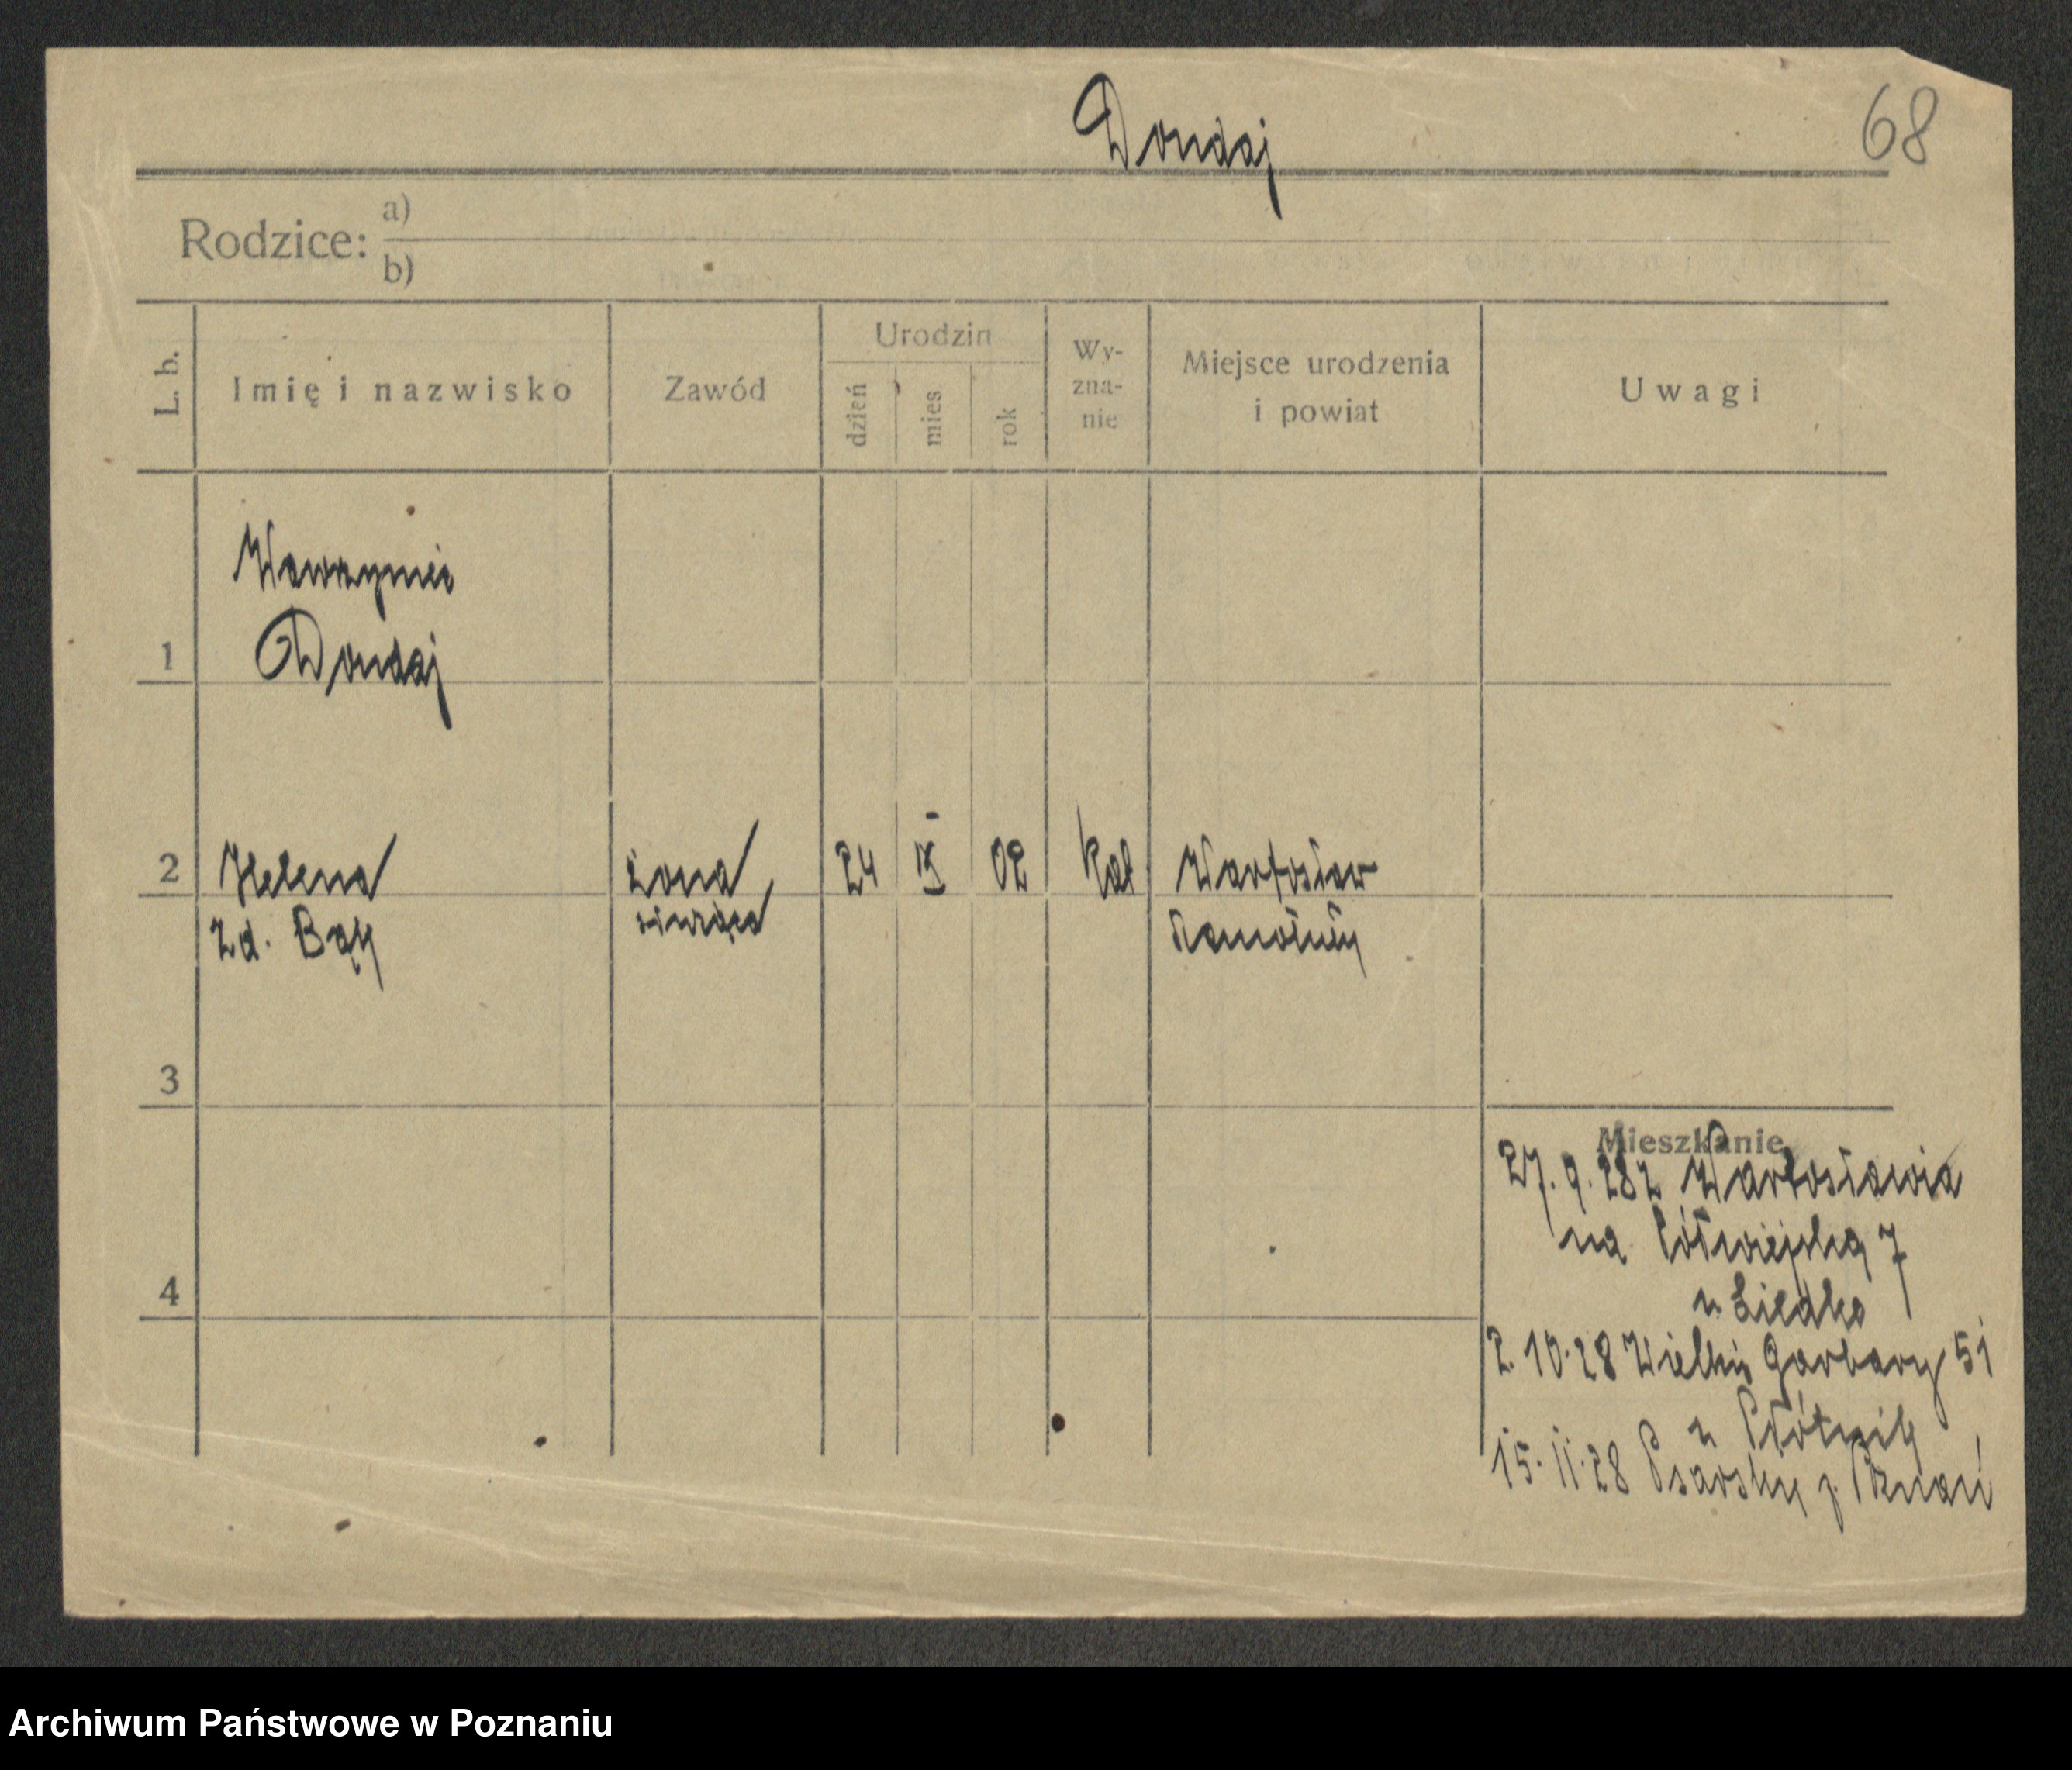 Dondaj
68
Rodzice: a)
b)
L. b.
Imię i nazwisko
Zawód
Urodzin
dzień
mies
rok
Wy-
zna-
nie
Miejsce urodzenia
i powiat
Uwagi
1
Wawrzyniec
Dondaj
2
Helena
zd. Bąk
żona
24
02
kat
Wartosław
Szamotuły
3
4
Mieszkanie
27.9.28 z Wartosławia
na Półwiejską 7
u
2.10.28 Wielkie Garbary 51
u Płótnik
15.11.28 Psarskie p. Poznań
Archiwum Państwowe w Poznaniu